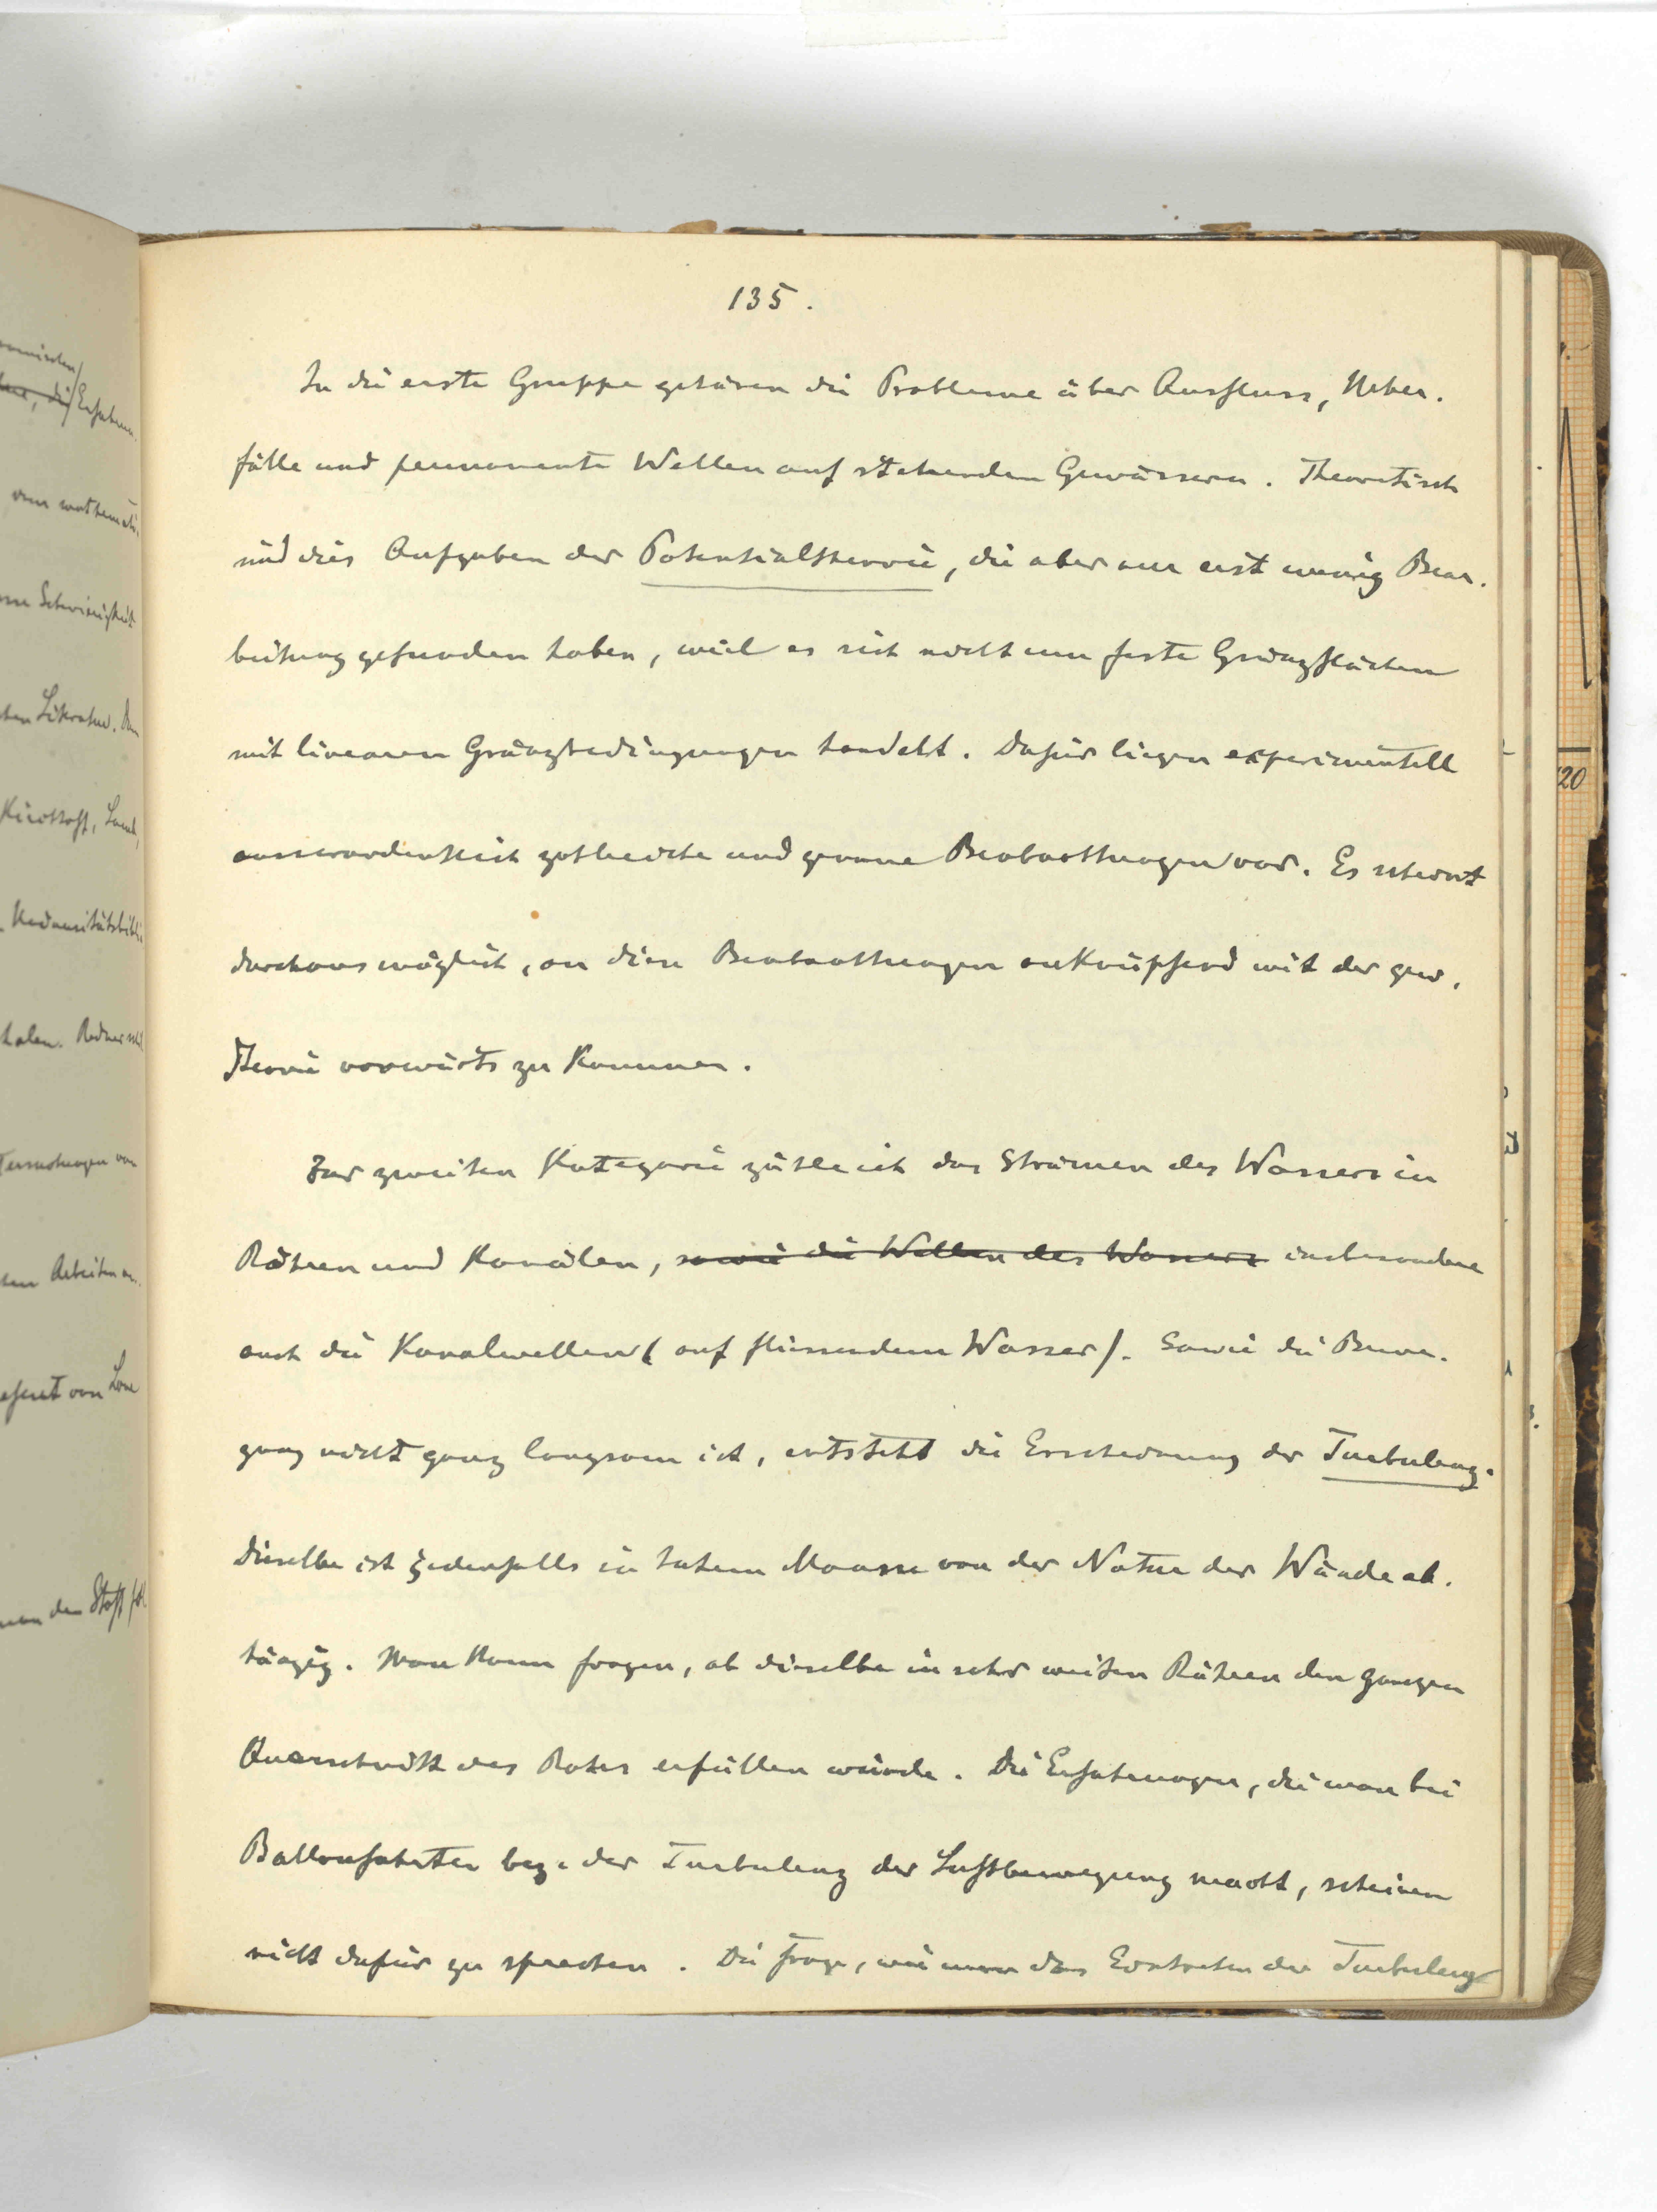 135.
In die erste Gruppe gehören die Probleme über Ausfluss, Ueber-
fälle und permanente Wellen auf stehenden Gewässern. Theoretisch
sind dies Aufgaben der Potentialtheorie, die aber nur erst wenig Bear-
beitung gefunden haben, weil es sich nicht um feste Gränzflächen
mit linearen Gränzbedingungen handelt. Dafür liegen experimentell
ausserordentlich zahlreiche und genaue Beobachtungen vor. Es scheint
durchaus möglich, an diese Beobachtungen anknüpfend mit der gew.
Theorie vorwärts zu kommen.
Zur zweiten Kategorie zähle ich das Strömen des Wassers in
Röhren und Kanälen, sowie die Wellen des Wassers insbesondere
auch die Kanalwellen (auf fliessendem Wasser). Sowie die Bewe-
gung nicht ganz langsam ist, entsteht die Erscheinung der Turbulenz.
Dieselbe ist jedenfalls in hohem Maasse von der Natur der Wände ab-
hängig. Man kann fragen, ob dieselbe in sehr weiten Röhren den ganzen
Querschnitt des Rohrs erfüllen würde. Die Erfahrungen, die man bei
Ballonfahrten bez. der Turbulenz der Luftbewegung macht, scheinen
nicht dafür zu sprechen. Die Frage, wie man das Eintreten der Turbulenz